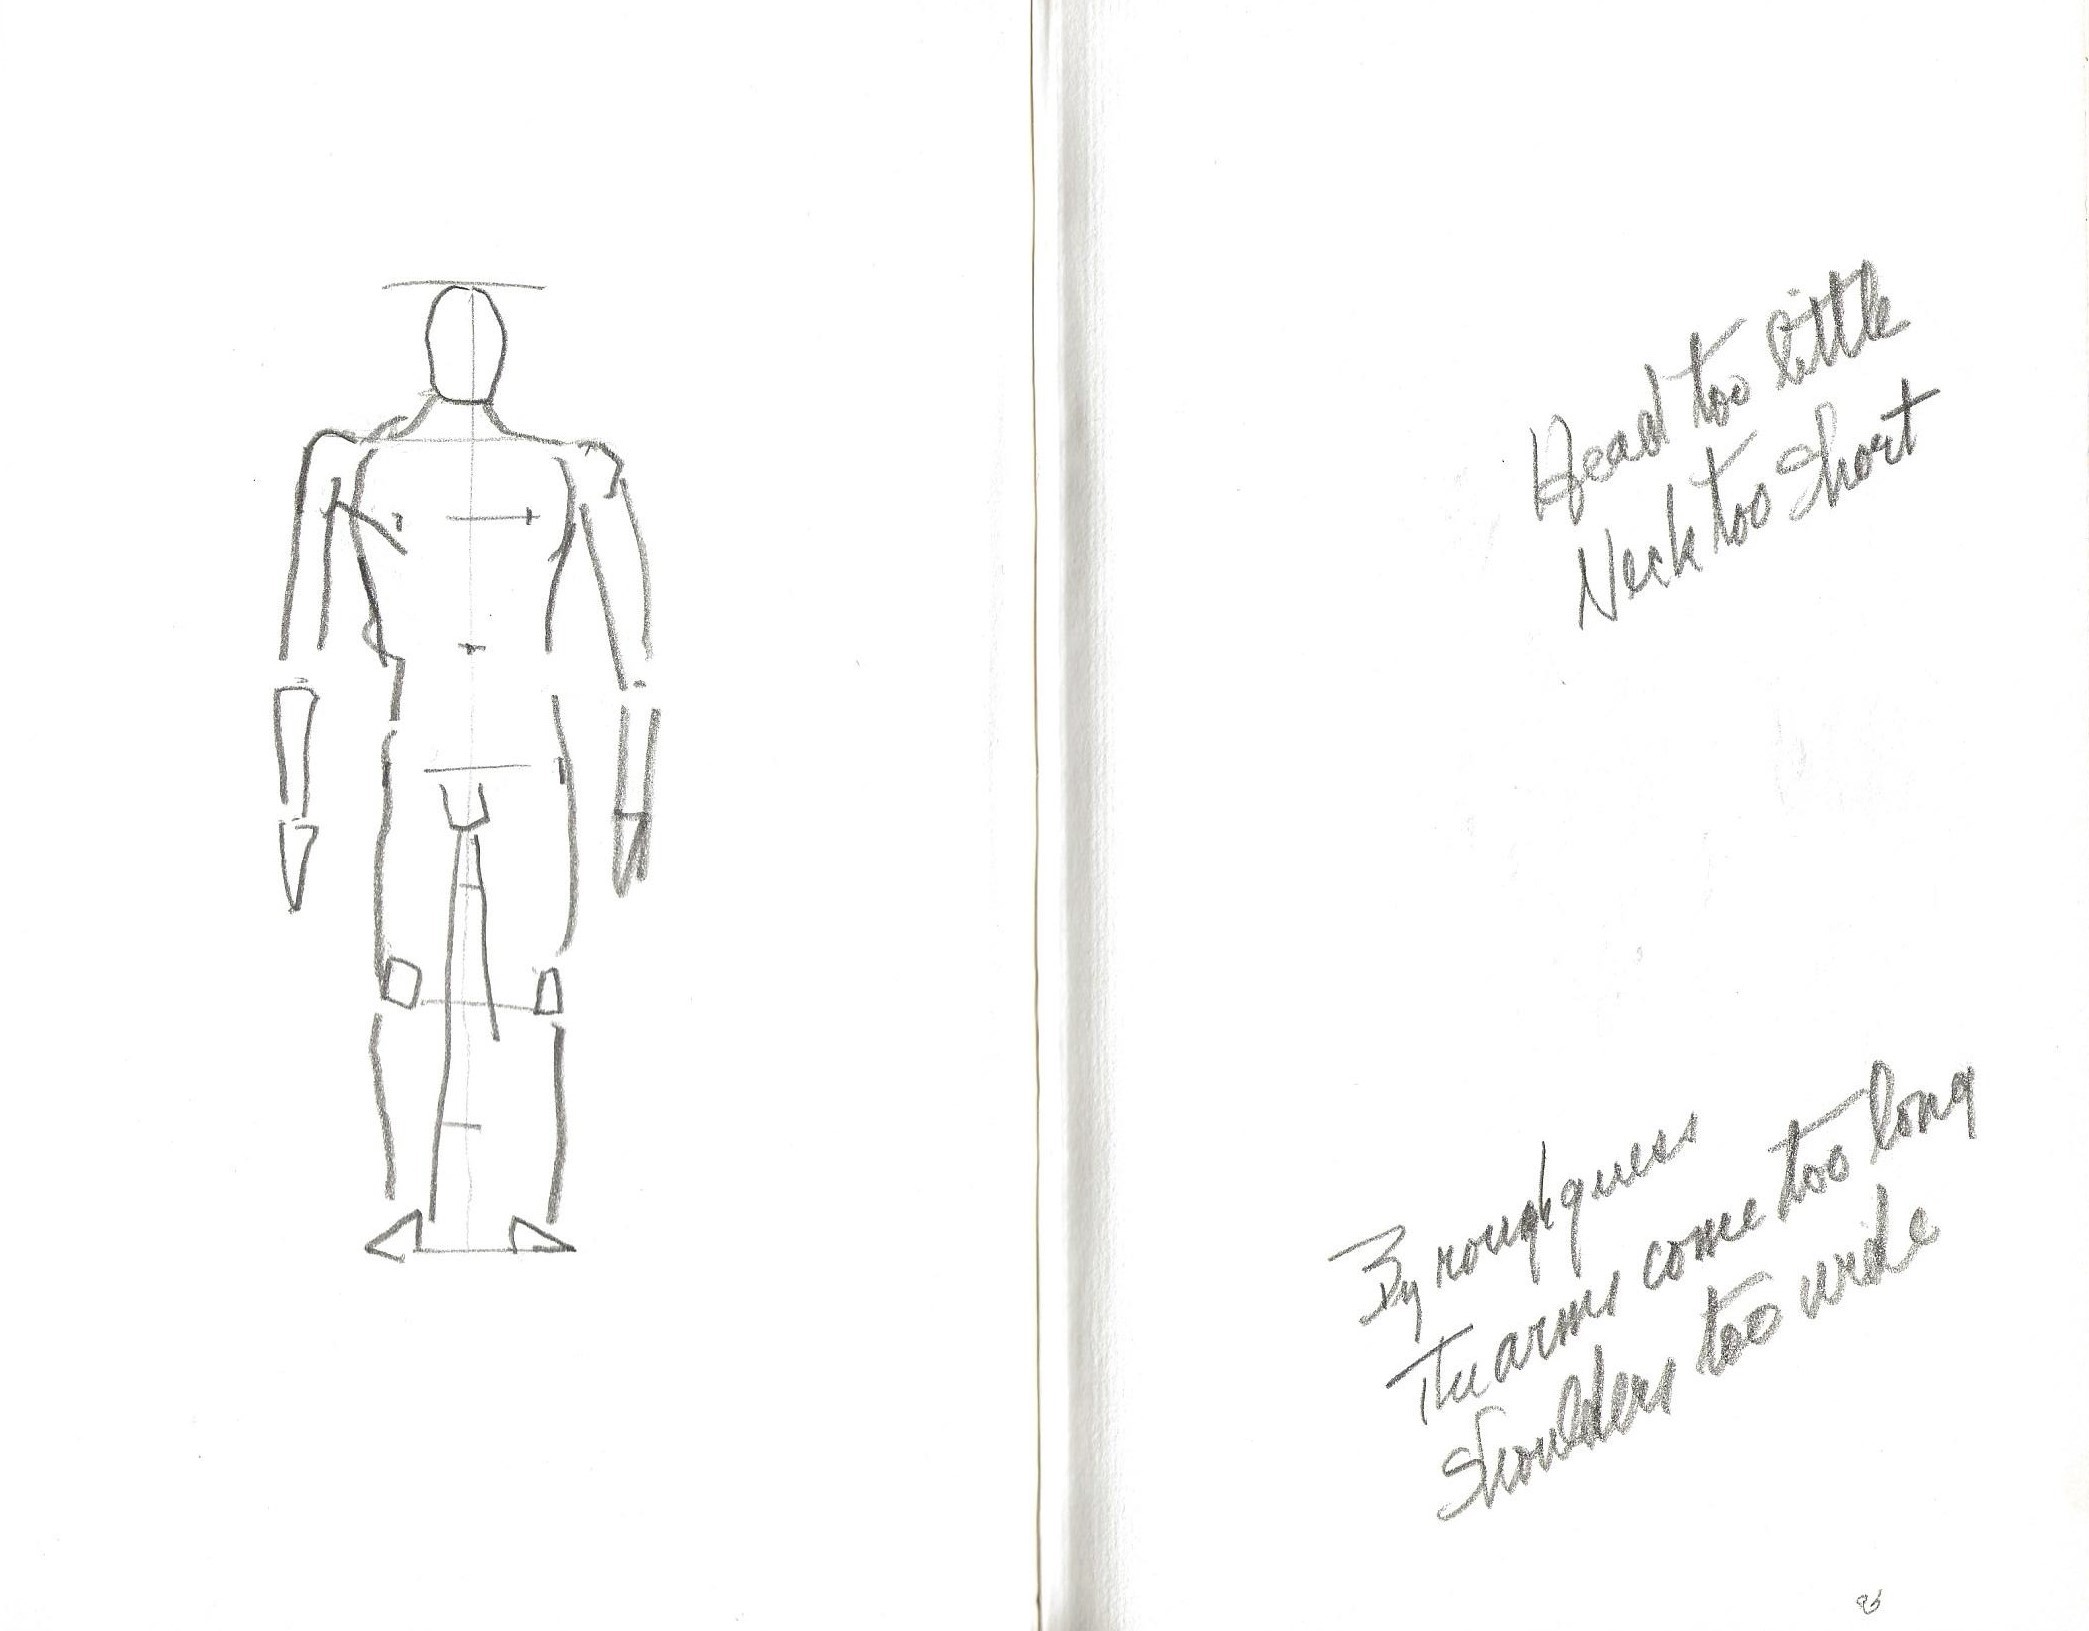 Head too little
Neck too short
By rough guess
The arms come too long
Shoulders too wide